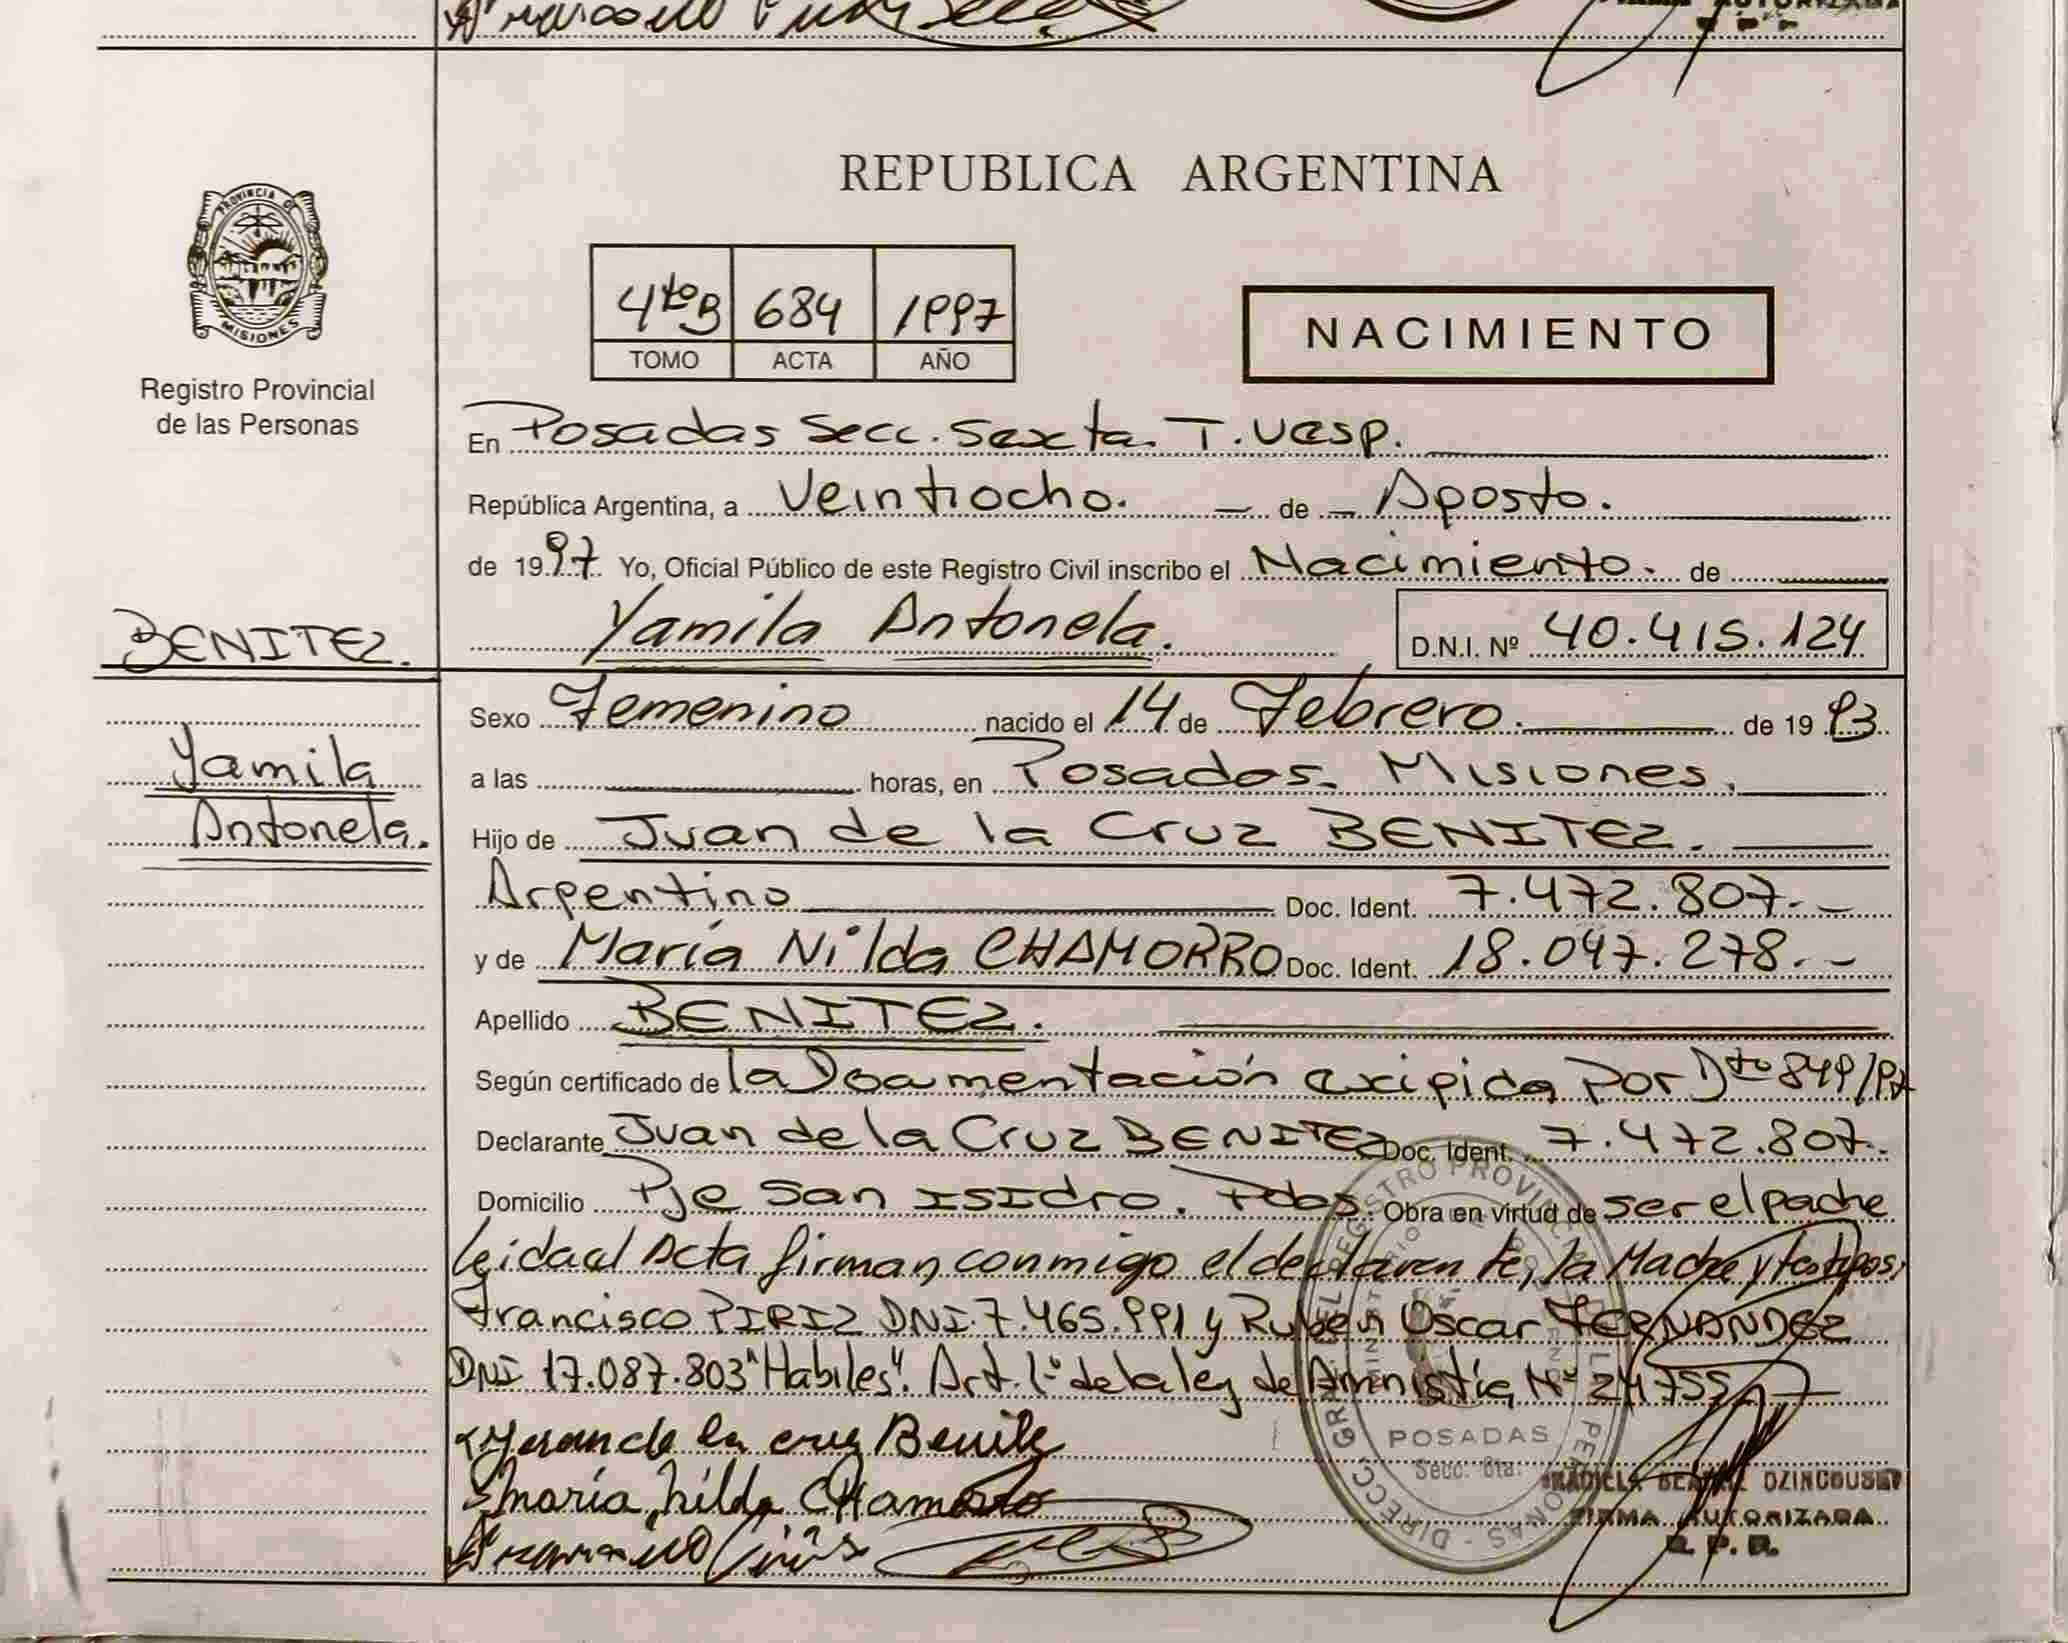 AUTORIZADA
REPUBLICA ARGENTINA
PROVINCIA DE
MISIONES
Registro Provincial
de las Personas
4to B 684 1997
TOMO ACTA AÑO
NACIMIENTO
En Posadas Secc. Sexta. T. Vesp.
República Argentina, a Veintiocho. de Agosto.
de 1997 Yo, Oficial Público de este Registro Civil inscribo el Nacimiento. de
BENITEZ.
Yamila Antonela. D.N.I. Nº 40.415.124
Sexo Femenino nacido el 14 de Febrero. de 1993
Yamila
Antonela.
a las horas, en Posadas. Misiones.
Hijo de Juan de la Cruz BENITEZ.
Argentino Doc. Ident. 7.472.807.-
y de María Nilda CHAMORRO Doc. Ident. 18.047.278.-
Apellido BENITEZ.
Según certificado de la Documentación exigida por Dto 849/97
Declarante Juan de la Cruz BENITEZ Doc. Ident. 7.472.807.
Domicilio Pje San Isidro. Pdas. Obra en virtud de ser el padre
leida el Acta firman conmigo el declarante, la Madre y testigos;
Francisco PIRIZ DNI. 7.465.991 y Ruben Oscar FERNANDEZ
DNI 17.087.803 "Habiles". Art. 1º de la ley de Amnistía Nº 24755
Juan de la cruz Benitez
María Nilda CHamorro
DIRECC. GRAL. DEL REGISTRO PROVINCIAL DE LAS PERSONAS
POSADAS
Secc. 6ta.
DZINCOUSKY
FIRMA AUTORIZADA
R. P. P.